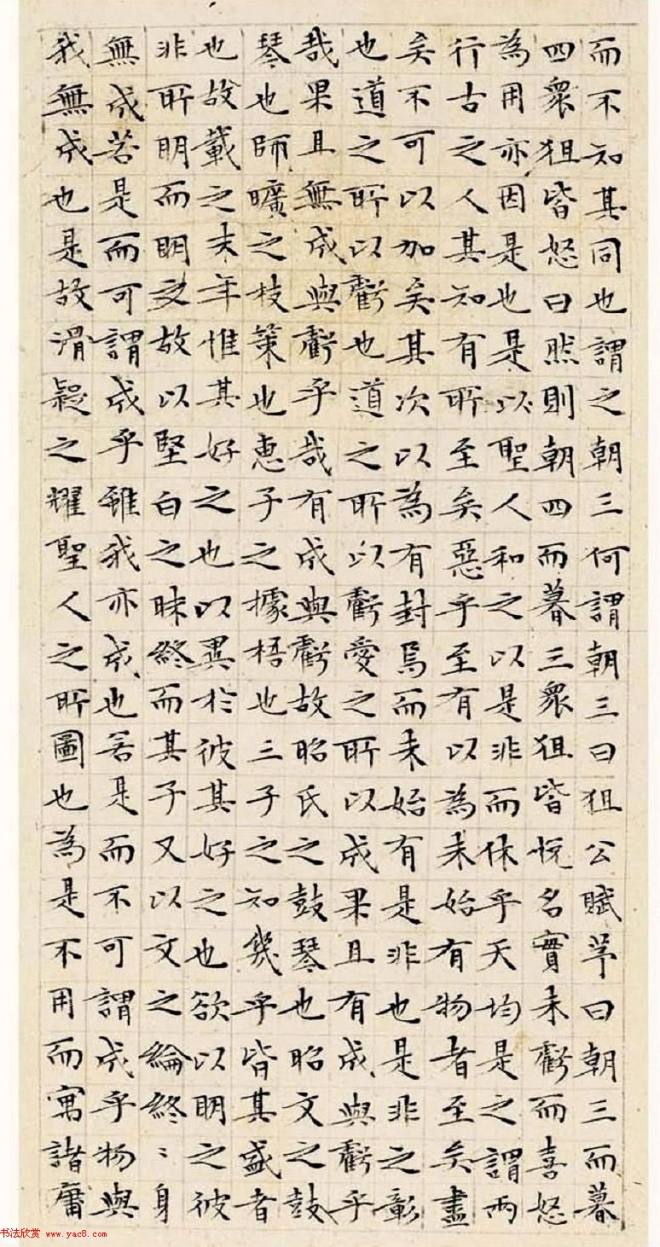 而不知其同也謂之朝三何謂朝三曰狙公賦芧曰朝三而暮
四衆狙皆怒曰然則朝四而暮三衆狙皆悅名實未虧而喜怒
為用亦因是也是以聖人和之以是非而休乎天均是之謂兩
行古之人其知有所至矣惡乎至有以為未始有物者至矣盡
矣不可以加矣其次以為有封焉而未始有是非也是非之彰
也道之所以虧也道之所以虧愛之所以成果且有成與虧乎
哉果且無成與虧乎哉有成與虧故昭氏之鼓琴也昭文之鼓
琴也師曠之枝策也惠子之據梧也三子之知幾乎皆其盛者
也故載之末年惟其好之也以異於彼其好之也欲以明之彼
非所明而明之故以堅白之昧終而其子又以文之綸終〻身
無成若是而可謂成乎雖我亦成也若是而不可謂成乎物與
我無成也是故滑疑之耀聖人之所圖也為是不用而寓諸庸
书法欣赏 www.yac8.com